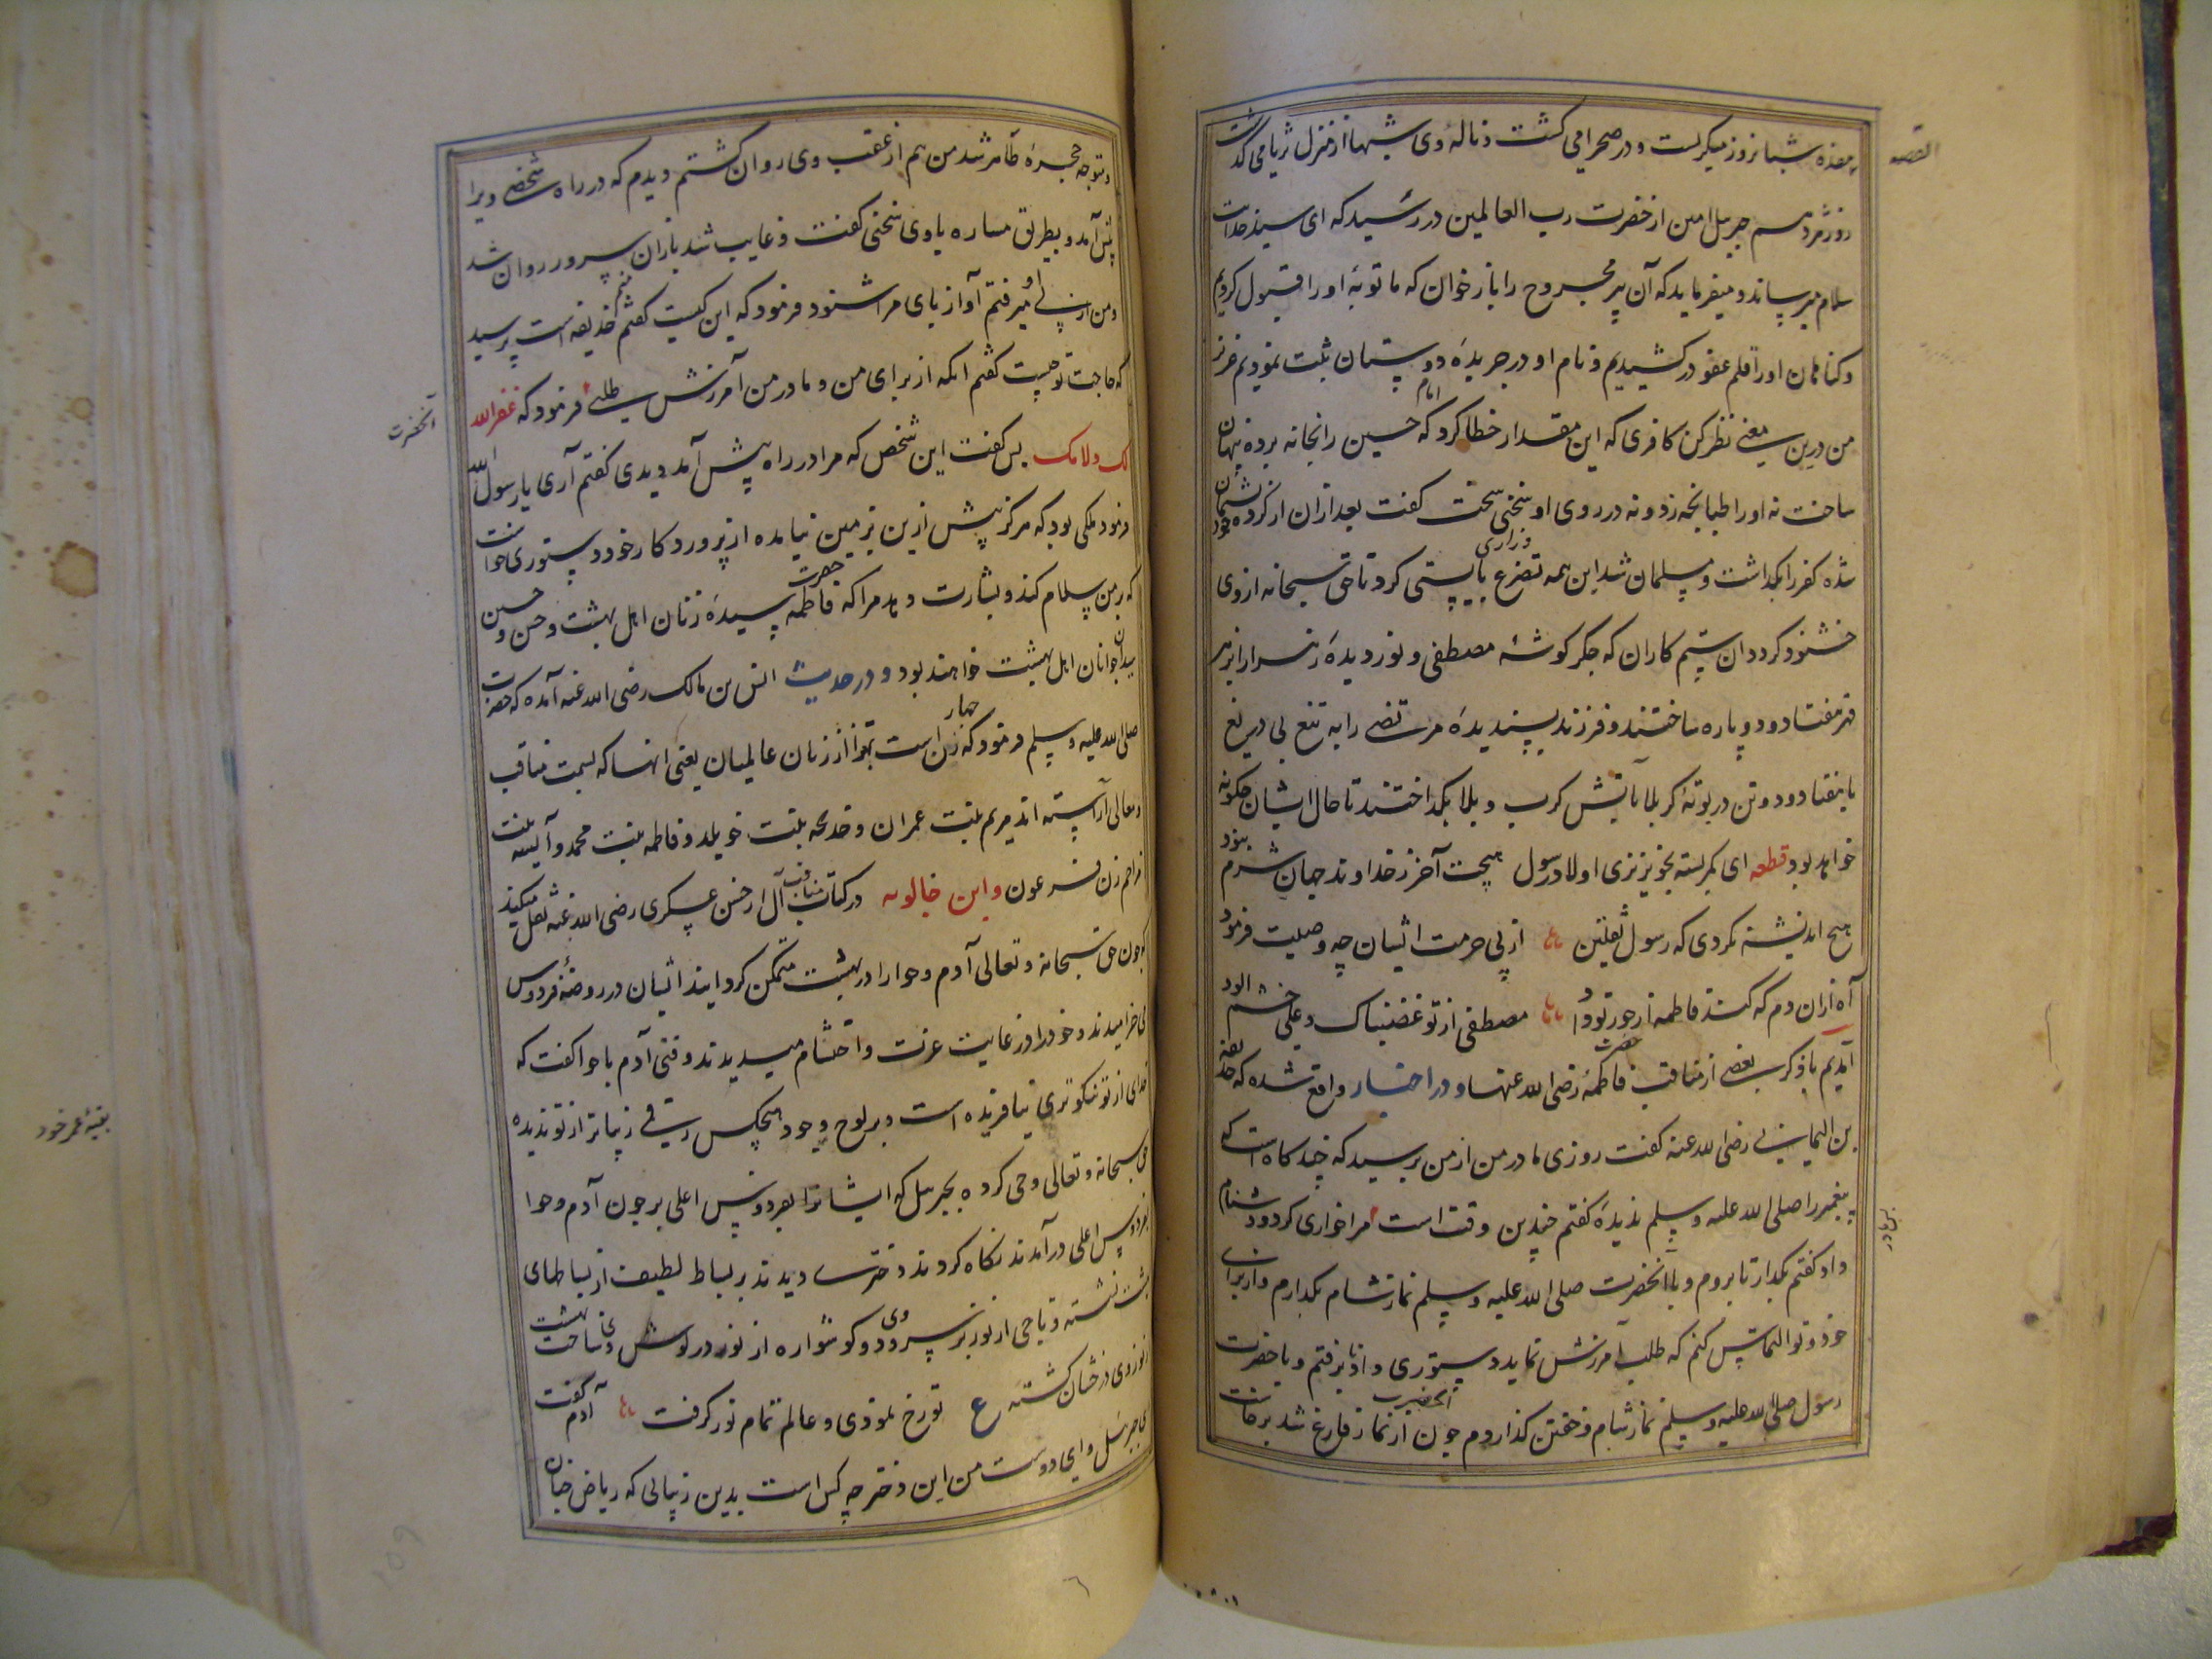 القصه
هفده شبانروز میکریست و در صحرا می کشت و ناله وی شبها از منزل ثریا می کذشت
روز هژدهم جبریل امین از حضرت رب العالمین در رسید که ای سید خدایت
سلام میرساند و میفرماید که آن پیر مجروح را باز خوان که ما توبهٔ او را قبول کردیم
و کناهان او را قلم عفو در کشیدیم و نام او در جریدهٔ دوستان ثبت نمودیم عزیز
من درین معنی نظر کن کافری که این مقدار خطا کرد که امام حسین را بخانه برده پنهان
ساخت نه او را طپانچه زد و نه در روی او سخنی سخت کفت بعد ازان از کرده خود پشیمان
شده کفر را بکذاشت و مسلمان شد این همه تضرع و زاری بایستی کرد تا حق سبحانه از وی
خشنود کردد ان ستم کاران که جکر کوشهٔ مصطفی و نور دیدهٔ زهرا را بزهر
قهر هفتاد و دو پاره ساختند و فرزند پسندیدهٔ مرتضی را به تیغ بی دریغ
با هفتاد و دو تن در بوتهٔ کربلا بآتش کرب و بلا بکداختند تا حال ایشان چکونه
خواهد بود قطعه ای کمر بسته بخونریزی اولاد رسول هیچت آخر ز خداوند جهان شرم نبود
هیچ اندیشه نکردی که رسول ثقلین از پی حرمت ایشان چه وصیت فرمود
آه ازان دم که کند فاطمه از جور تو داد مصطفی از تو غضبناک و علی خشم الود
آمدیم باذکر بعضی از مناقب حضرت فاطمه رضی الله عنها و در اخبار واقع شده که حذیفه
بن الیمانی رضی الله عنه کفت روزی مادر من از من پرسید که چند کاه است که
پیغمبر را صلی الله علیه و سلم ندیدهٔ کفتم چندین وقت است مرا خواری کرد و دشنام
داد کفتم بکدار تا بروم و با آنحضرت صلی الله علیه و سلم نماز شام بکدارم و از برای
خود و تو التماس کنم که طلب آمرزش نماید دستوری داد برفتم و با حضرت
رسول صلی الله علیه و سلم نماز شام و خفتن کذاردم چون آنحضرت از نماز فارغ شد برخاست
و متوجه حجرهٔ طاهره شد من هم از عقب وی روان کشتم دیدم که در راه شخصی ویرا
پیش آمد و بطریق مساره باوی سخنی کفت و غایب شد باز ان سرور روان شد
و من از پی او میرفتم آواز پای مرا شنود فرمود که این کیست کفتم منم حذیفه است پرسید
که حاجت تو چیست کفتم انکه از برای من و مادر من آمرزش طلبی فرمود که غفر الله
آنحضرت
لک و لامک پس کفت این شخص که مرا در راه پیش آمد دیدی کفتم آری یا رسول الله
فرمود ملکی بود که هرکز پیش ازین بزمین نیامده از پروردکار خود دستوری خواست
که بر من سلام کند و بشارت دهد مرا که حضرت فاطمه سیدهٔ زنان اهل بهشت و حسن و حسین
سیدان جوانان اهل بهشت خواهند بود و در حدیث انس بن مالک رضی الله عنه آمده که حضرت
صلی الله علیه و سلم فرمود که چهار زن است بهتر از زنان عالمیان یعنی انها که بسمت مناقب
و معالی آراسته اند مریم بنت عمران و خدیجه بنت خویلد و فاطمه بنت محمد و آسیه بنت
مزاحم زن فرعون و ابن خالویه در کتاب مناقب آل از حسن عسکری رضی الله عنه نقل میکند
که چون حق سبحانه و تعالی آدم و حوا را در بهشت متمکن کردانید ایشان در روضهٔ فردوس
می خرامیدند و خود را در غایت عزت و احتشام میدیدند وقتی آدم با حوا کفت که
خدای از تو نیکوتری نیافریده است و بر لوح وجود هیچکس رقمی زیباتر از تو ندیده
حق سبحانه و تعالی وحی کرد به جبریل که ایشانرا بفردوس اعلی بر چون آدم و حوا
بفردوس اعلی در آمدند نکاه کردند دختری دیدند بر بساط لطیف از بساطهای
بهشت نشسته و تاجی از نور بر سر وی و دو کوشواره از نور در کوش وی و ساحت بهشت
از نور وی درخشان کشته ع تو رخ نمودی و عالم تمام نور کرفت آدم کفت
ای جبرئیل و ای دوست من این دختر چه کس است بدین زیبائی که ریاض جنان
بقیهٔ عمر خود